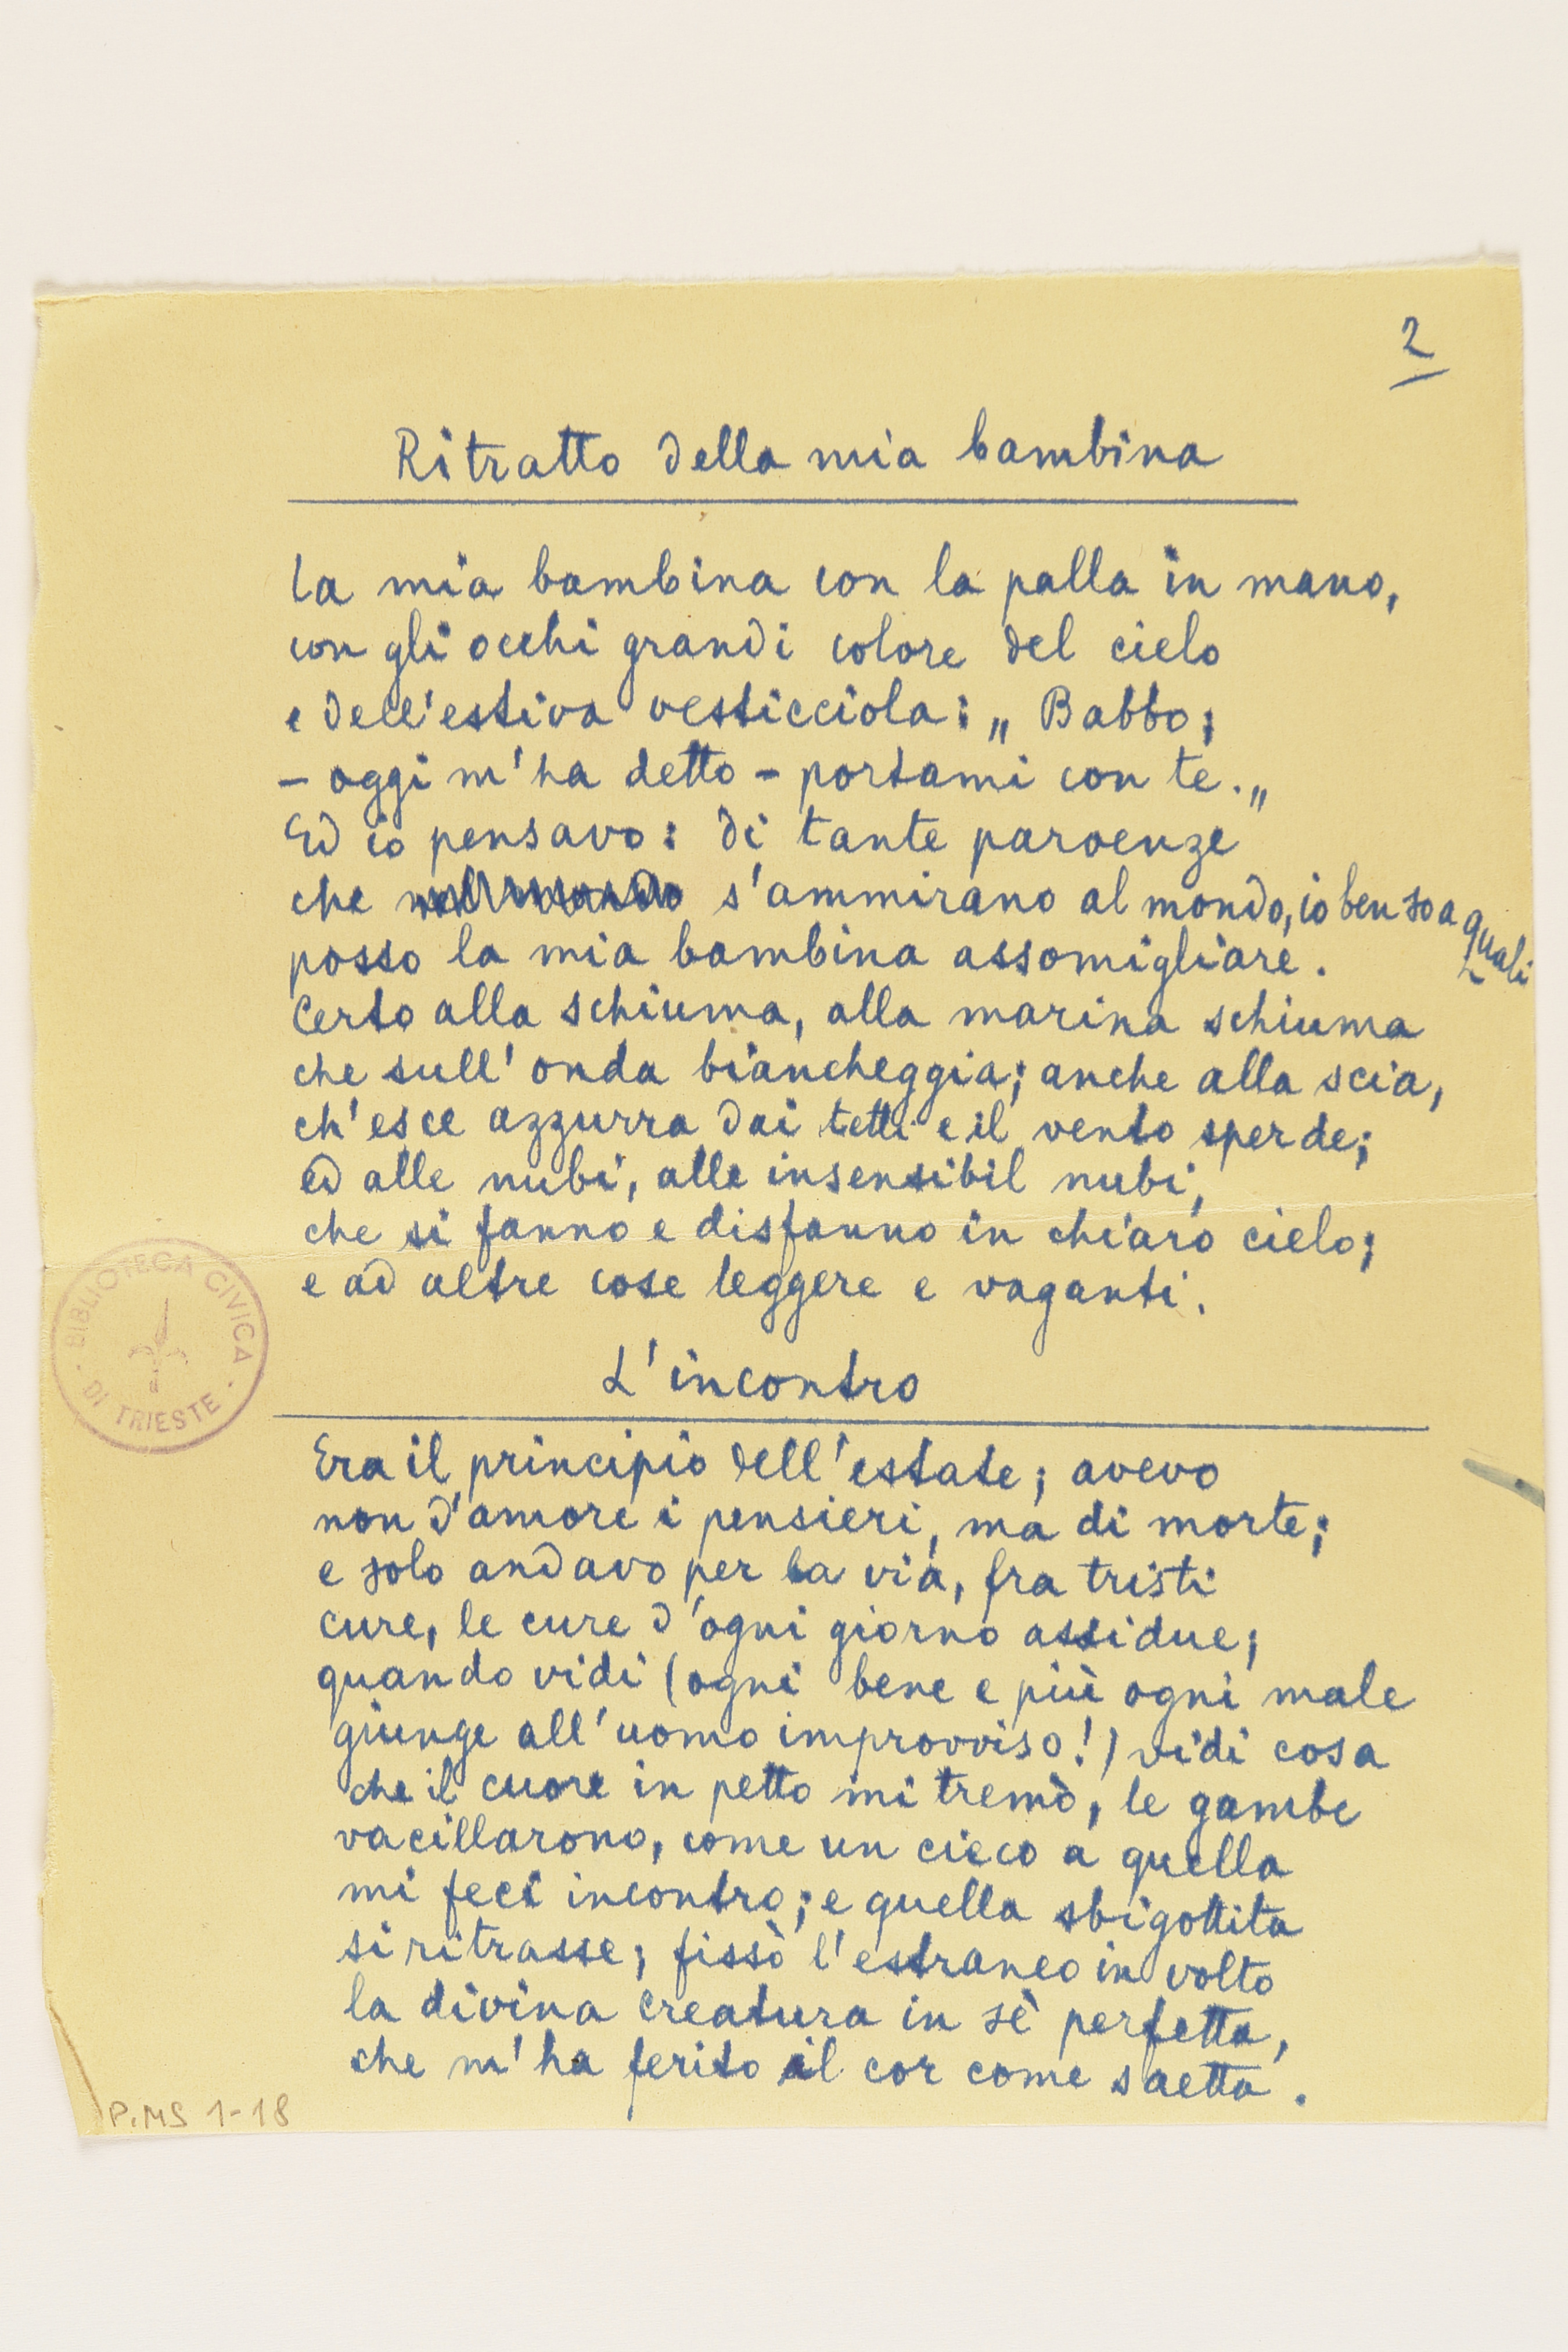 2
Ritratto della mia bambina
La mia bambina con la palla in mano,
con gli occhi grandi colore del cielo
e dell'estiva vesticciola: „ Babbo;
– oggi m'ha detto – portami con te.„
Ed io pensavo: di tante parvenze
che s'ammirano al mondo, io ben so a quali
posso la mia bambina assomigliare.
Certo alla schiuma, alla marina schiuma
che sull'onda biancheggia; anche alla scia,
ch'esce azzurra dai tetti e il vento sperde;
ed alle nubi, alle insensibil nubi,
che si fanno e disfanno in chiaro cielo;
e ad altre cose leggere e vaganti.
L'incontro
Era il principio dell'estate; avevo
non d'amore i pensieri, ma di morte;
e solo andavo per la via, fra tristi
cure, le cure d'ogni giorno assidue;
quando vidi (ogni bene e più ogni male
giunge all'uomo improvviso!) vidi cosa
che il cuore in petto mi tremò, le gambe
vacillarono, come un cieco a quella
mi feci incontro; e quella sbigottita
si ritrasse; fissò l'estraneo in volto
la divina creatura in sè perfetta,
che m'ha ferito il cor come saetta.
BIBLIOTECA CIVICA
DI TRIESTE
P.MS 1-18